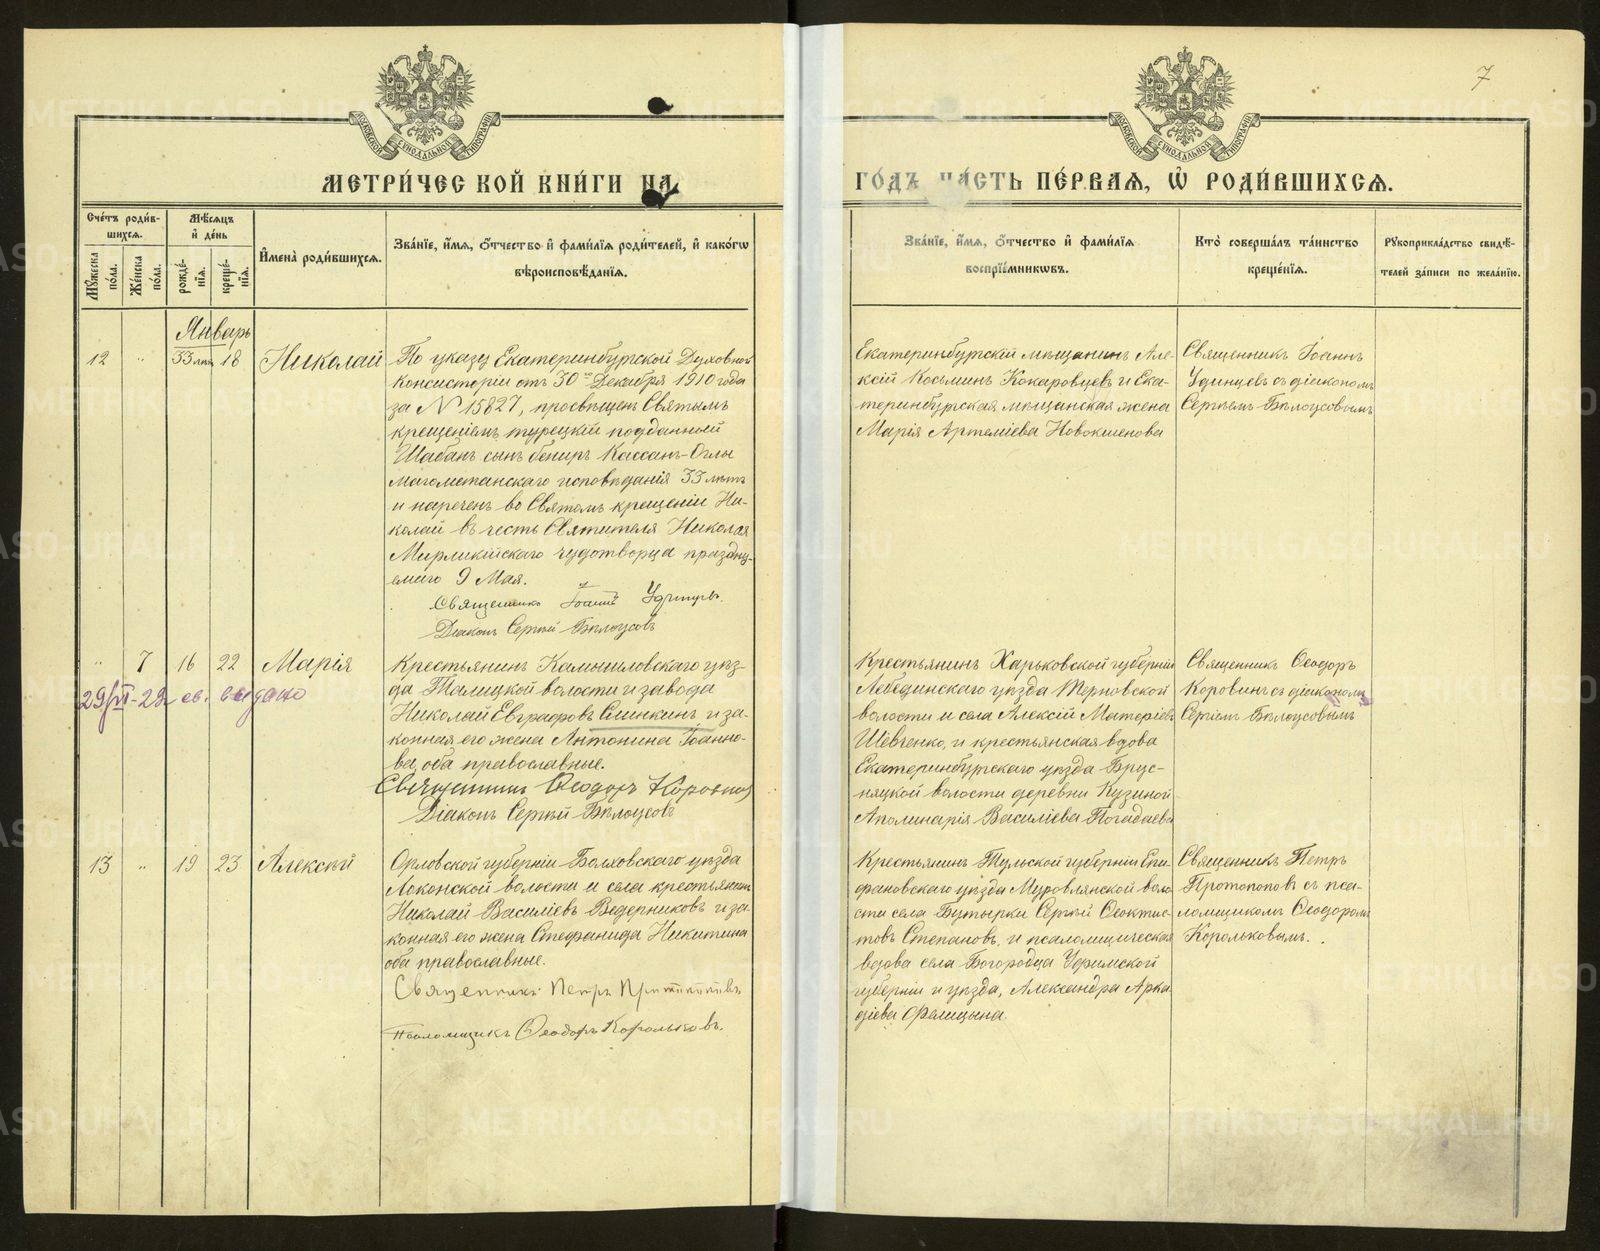 7
МОСКОВСКОЙ СѴНОДАЛЬНОЙ ТИПОГРАФІИ
МОСКОВСКОЙ СѴНОДАЛЬНОЙ ТИПОГРАФІИ
МЕТРИ́ЧЕС КОЙ КНИ́ГИ НА
ГО́ДЪ ЧА́СТЬ ПЕ́РВАѦ, Ѡ҆ РОДИ́ВШИХСѦ.
Сче́тъ роди́вшихсѧ.
Мѣ́сѧцъ и҆ де́нь
Мꙋ́жеска по́ла.
Же́нска по́ла.
рожде́нїѧ.
креще́нїѧ.
И҆мена̀ роди́вшихсѧ.
Зва́нїе, и҆́мѧ, ѻ҆́тчество и҆ фами́лїѧ роди́телей, и҆ како́гѡ
вѣроисповѣ́данїѧ.
Зва́нїе, и҆́мѧ, ѻ҆́тчество и҆ фами́лїѧ
воспрїе́мникѡвъ.
Кто̀ соверша́лъ та́инство
креще́нїѧ.
Рꙋкоприкла́дство свидѣ́-
телей за́писи по жела́нїю.
Январь
12 " 33 лѣт 18 Николай
По указу Екатеринбургской Духовной
Консисторіи отъ 30го Декабря 1910 года
за № 15827, просвѣщенъ Святымъ
крещеніемъ турецкій подданный
Шабанъ сынъ Кассанъ-Оглы
магометанскаго исповѣданія 33 лѣтъ
и нареченъ во Святомъ крещеніи Ни-
колай въ честь Святителя Николая
Мирликійскаго чудотворца праздну-
емаго 9 Мая.
Священникъ Іоаннъ Удинцевъ.
Діаконъ Сергѣй Бѣлоусовъ
Екатеринбургскій мѣщанинъ Але-
ксій Косьминъ Кокаровцевъ и Ека-
теринбургская мѣщанская жена
Марія Артеміева Новокшенова
Священникъ Іоаннъ
Удинцевъ съ діакономъ
Сергѣемъ Бѣлоусовымъ
" 7 16 22 Марія
29/VI-29 св. выдано
Крестьянинъ Камышловскаго уѣз-
да Талицкой волости и завода
Николай Евграфовъ Слинкинъ и за-
конная его жена Антонина Іоанно-
ва, оба православные.
Священникъ Ѳеодоръ Коровинъ
Діаконъ Сергѣй Бѣлоусовъ
Крестьянинъ Харьковской губерніи
Лебединскаго уѣзда Терновской
волости и села Алексій Матѳіевъ
Шевченко, и крестьянская вдова
Екатеринбургскаго уѣзда Брус-
няцкой волости деревни Кузиной
Аполинарія Василіева Погадаева
Священникъ Ѳеодоръ
Коровинъ съ діакономъ
Сергѣемъ Бѣлоусовымъ
13 " 19 23 Алексѣй
Орловской губерніи Болховскаго уѣзда
Локонской волости и села крестьянинъ
Николай Василіевъ Ведерниковъ и за-
конная его жена Стефанида Никитина
оба православные.
Священникъ Петръ Протопоповъ
Псаломщикъ Ѳеодоръ Корольковъ.
Крестьянинъ Тульской губерніи Епи-
фановскаго уѣзда Муровлянской воло-
сти села Бутырки Сергѣй Ѳеоктис-
товъ Степановъ, и псаломщическая
вдова села Богородца Уфимской
губерніи и уѣзда, Александра Арка-
діева Фелицына.
Священникъ Петръ
Протопоповъ съ пса-
ломщикомъ Ѳеодоромъ
Корольковымъ.
METRIKI.GASO-URAL.RU